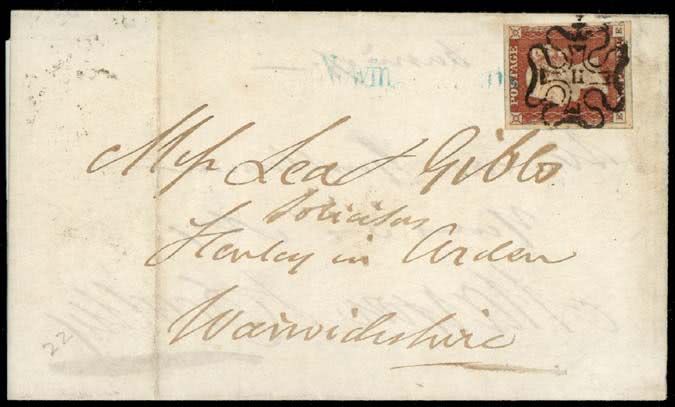 POSTAGE
11
Messrs Lea & Gibbs
Solicitors
Henley in Arden
Warwickshire
22